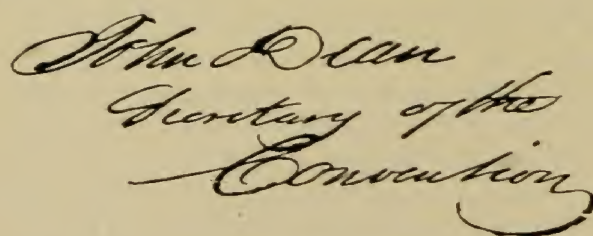 John Dean
Secretary of the
Convention